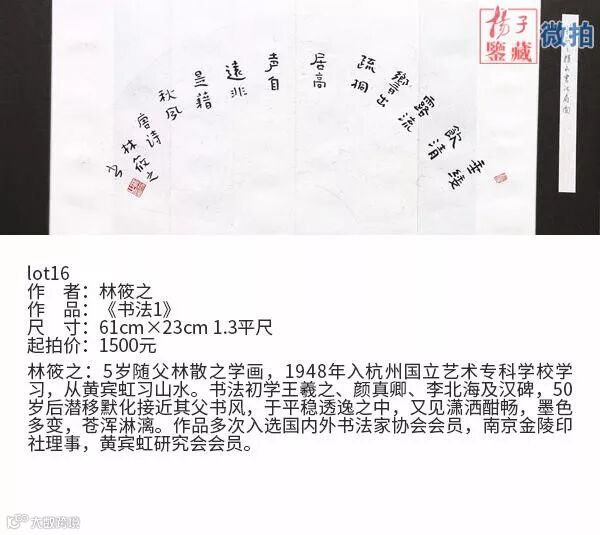 揚子
鑒藏
微拍
垂緌
飲清
露流
響出
疏桐
居高
声自
遠非
是藉
秋风
唐诗
林筱之
书
lot16
作 者：林筱之
作 品：《书法1》
尺 寸：61cm×23cm 1.3平尺
起拍价：1500元
林筱之：5岁随父林散之学画，1948年入杭州国立艺术专科学校学
习，从黄宾虹习山水。书法初学王羲之、颜真卿、李北海及汉碑，50
岁后潜移默化接近其父书风，于平稳透逸之中，又见潇洒酣畅，墨色
多变，苍浑淋漓。作品多次入选国内外书法家协会会员，南京金陵印
社理事，黄宾虹研究会会员。
大数跨境